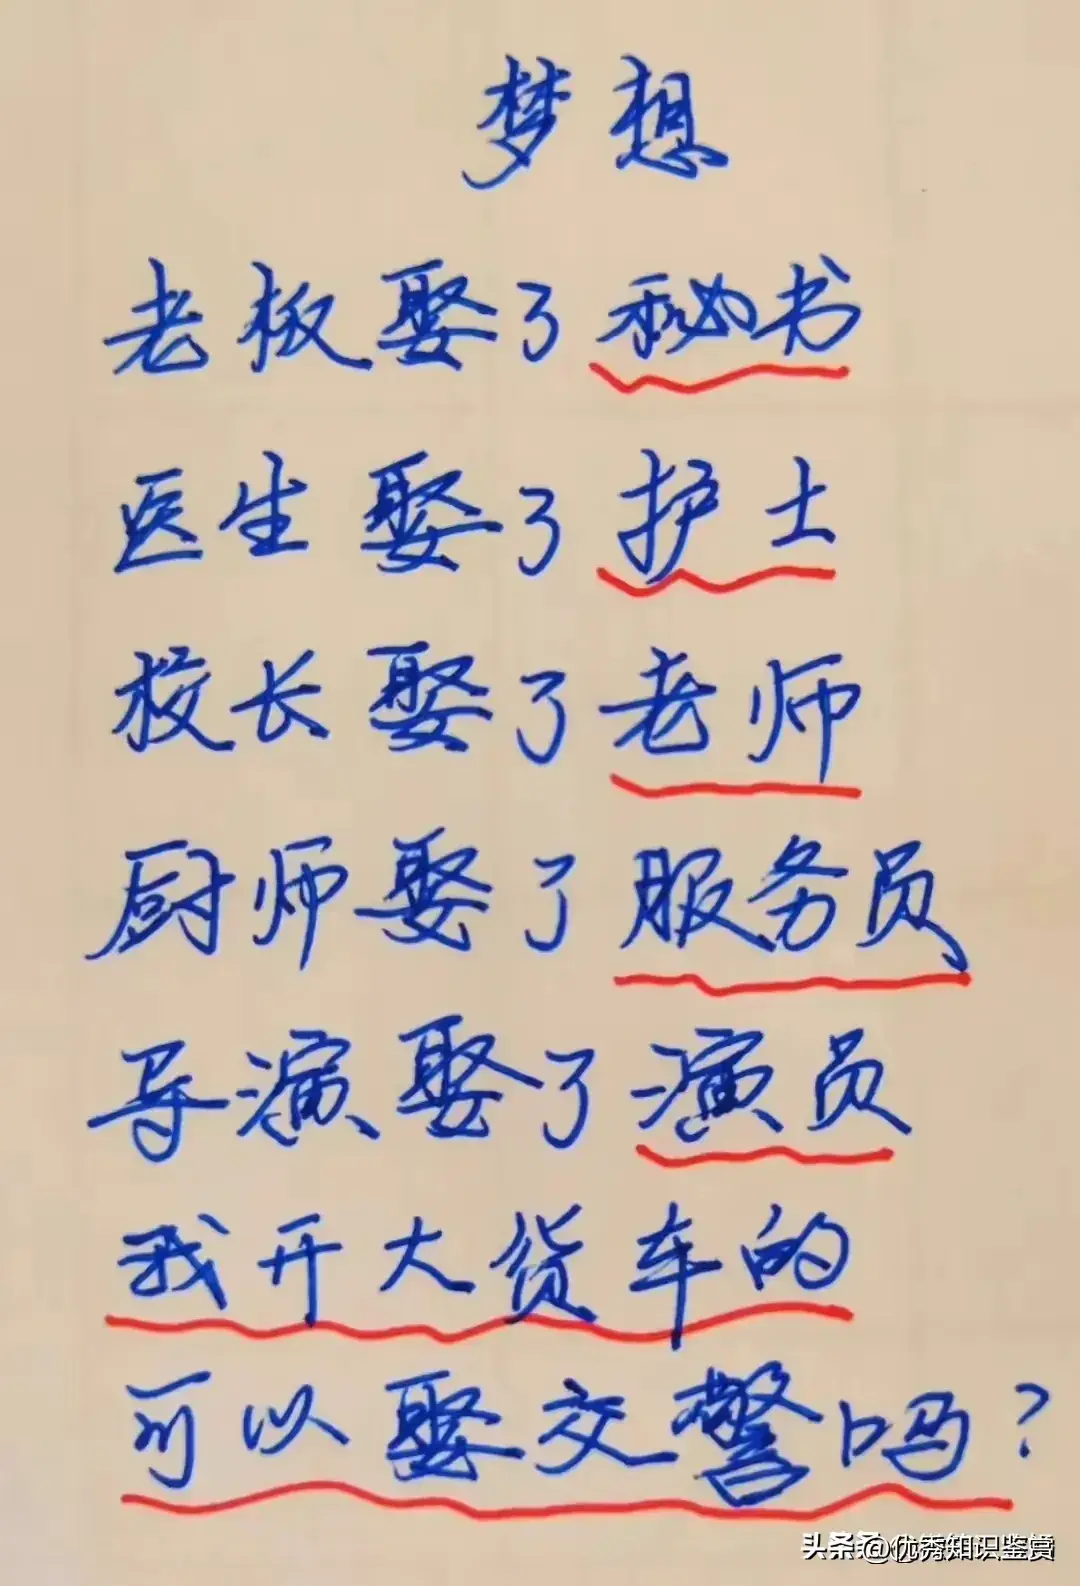 梦想
老板娶了秘书
医生娶了护士
校长娶了老师
厨师娶了服务员
导演娶了演员
我开大货车的
可以娶交警吗?
头条 @优秀知识鉴赏